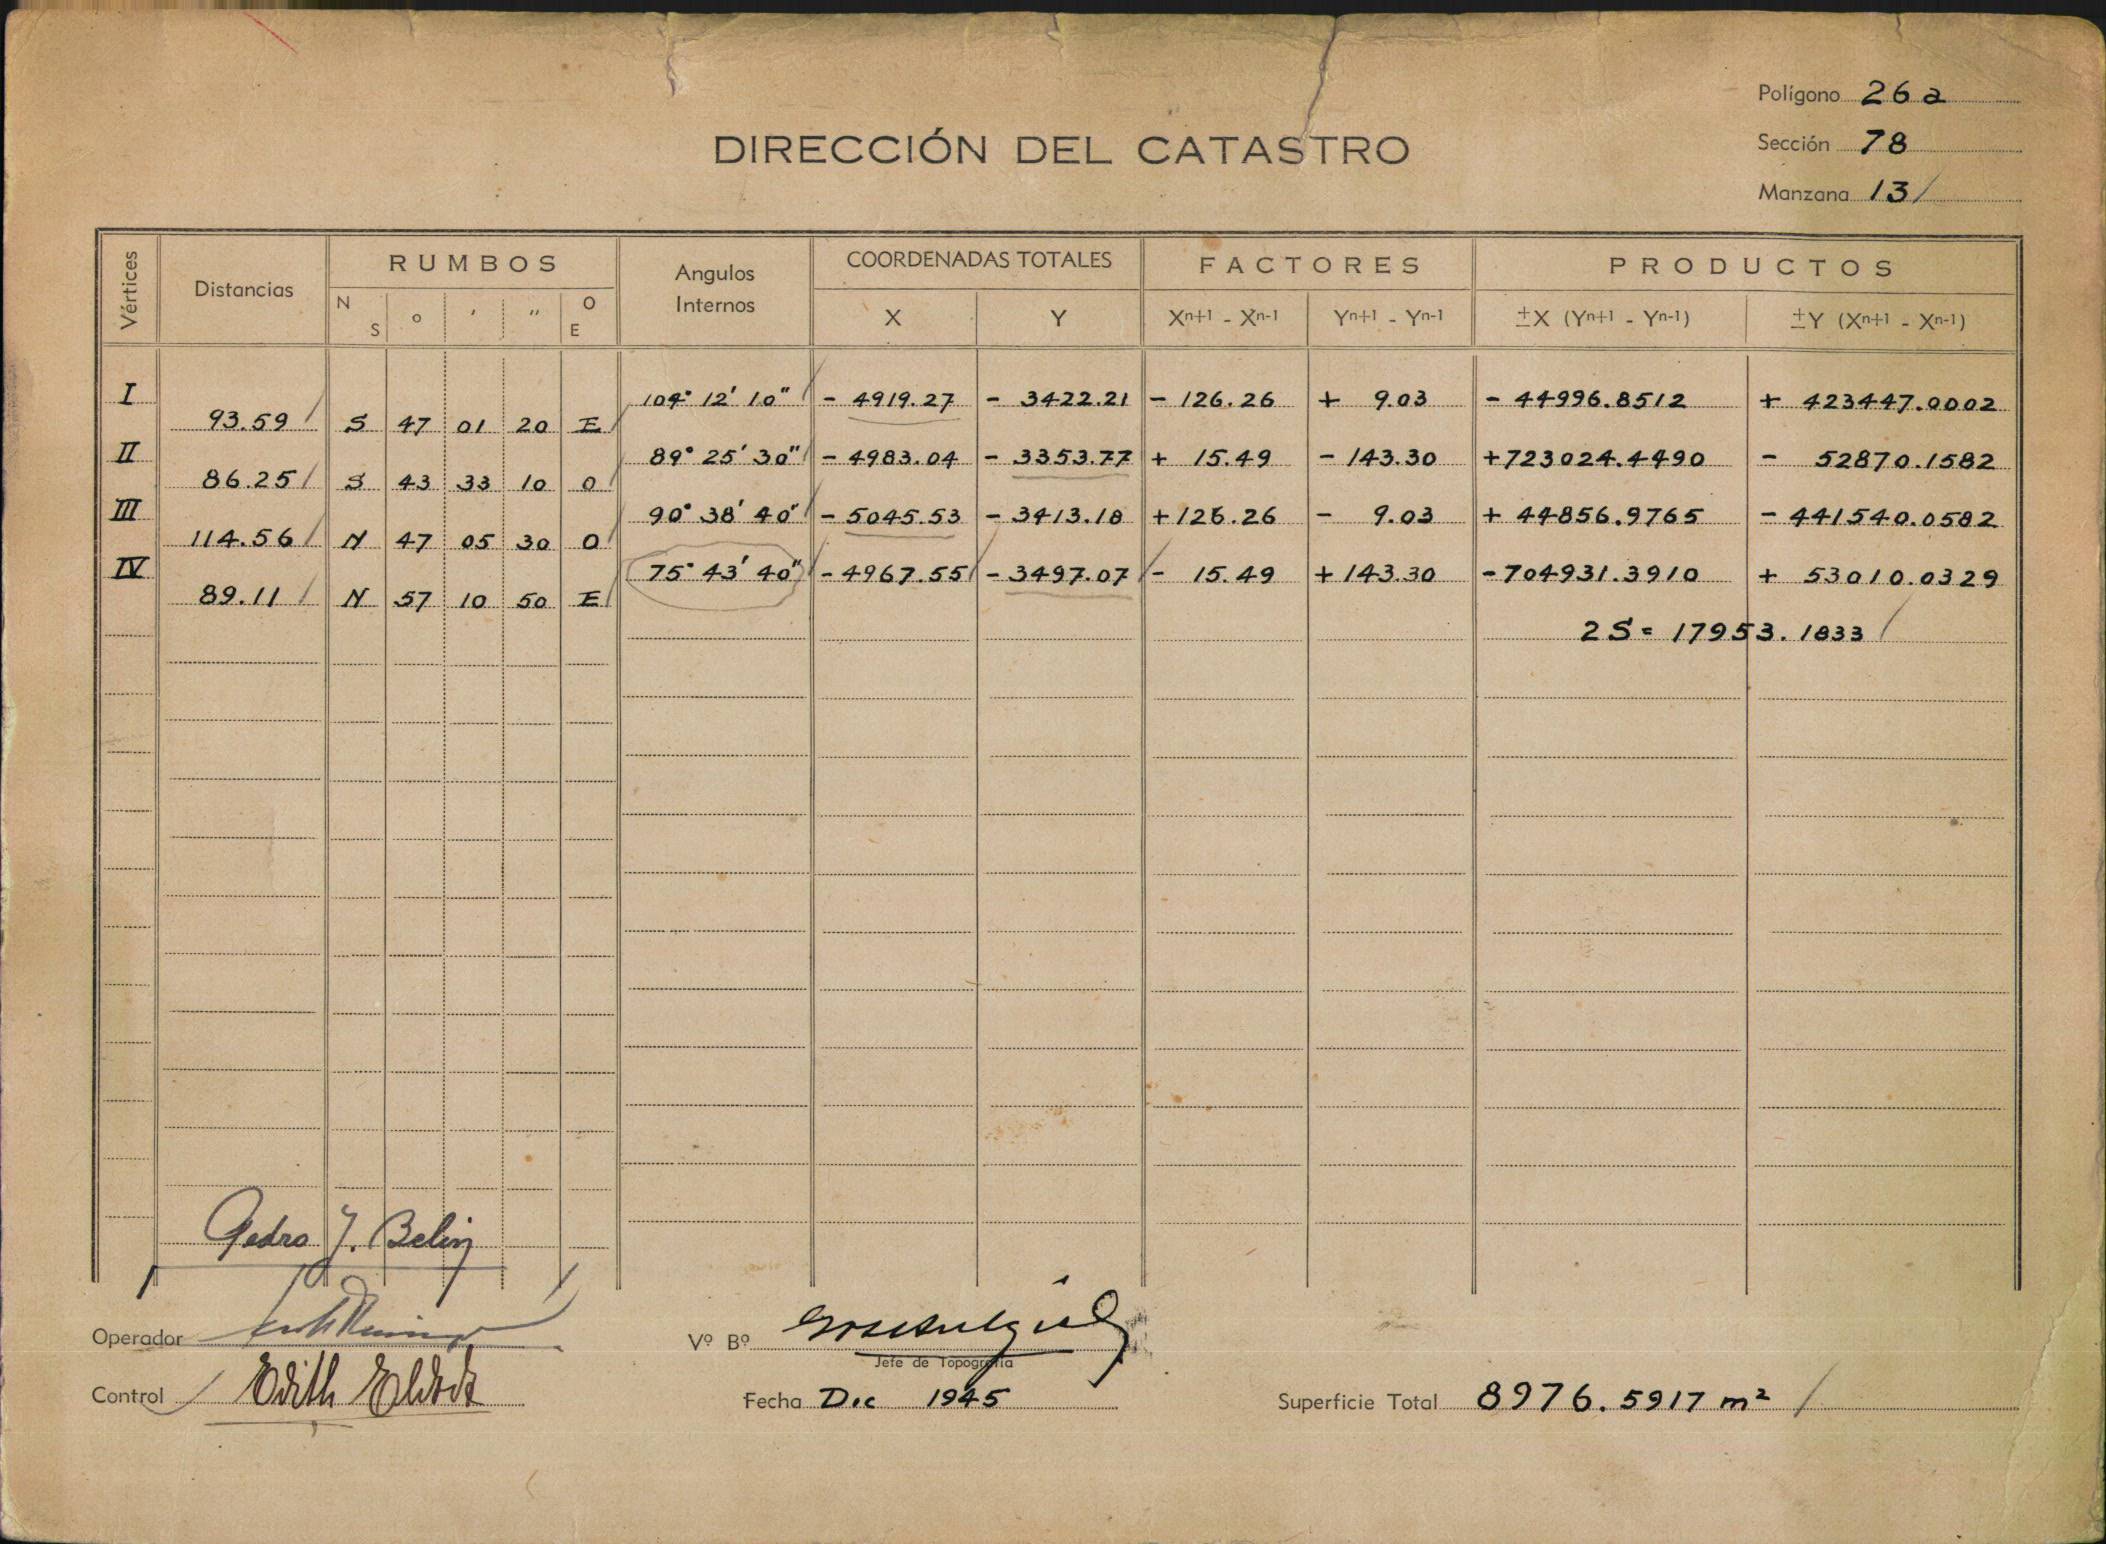 Polígono 26a
DIRECCIÓN DEL CATASTRO
Sección 78
Manzana 13
Vértices Distancias RUMBOS Angulos Internos COORDENADAS TOTALES FACTORES PRODUCTOS
N S ° ' " O E X Y Xn+1 - Xn-1 Yn+1 - Yn-1 ±X (Yn+1 - Yn-1) ±Y (Xn+1 - Xn-1)
I 104° 12' 10" - 4919.27 - 3422.21 - 126.26 + 9.03 - 44996.8512 + 423447.0002
93.59 S 47 01 20 E
II 89° 25' 30" - 4983.04 - 3353.77 + 15.49 - 143.30 +723024.4490 - 52870.1582
86.25 S 43 33 10 O
III 90° 38' 40" - 5045.53 - 3413.18 +126.26 - 9.03 + 44856.9765 - 441540.0582
114.56 N 47 05 30 O
IV 75° 43' 40" - 4967.55 - 3497.07 - 15.49 + 143.30 -704931.3910 + 53010.0329
89.11 N 57 10 50 E
2S = 17953.1833
Pedro J. Belin
Operador
Vº Bº
Jefe de Topografía
Control Edith
Fecha Dic 1945
Superficie Total 8976.5917 m²